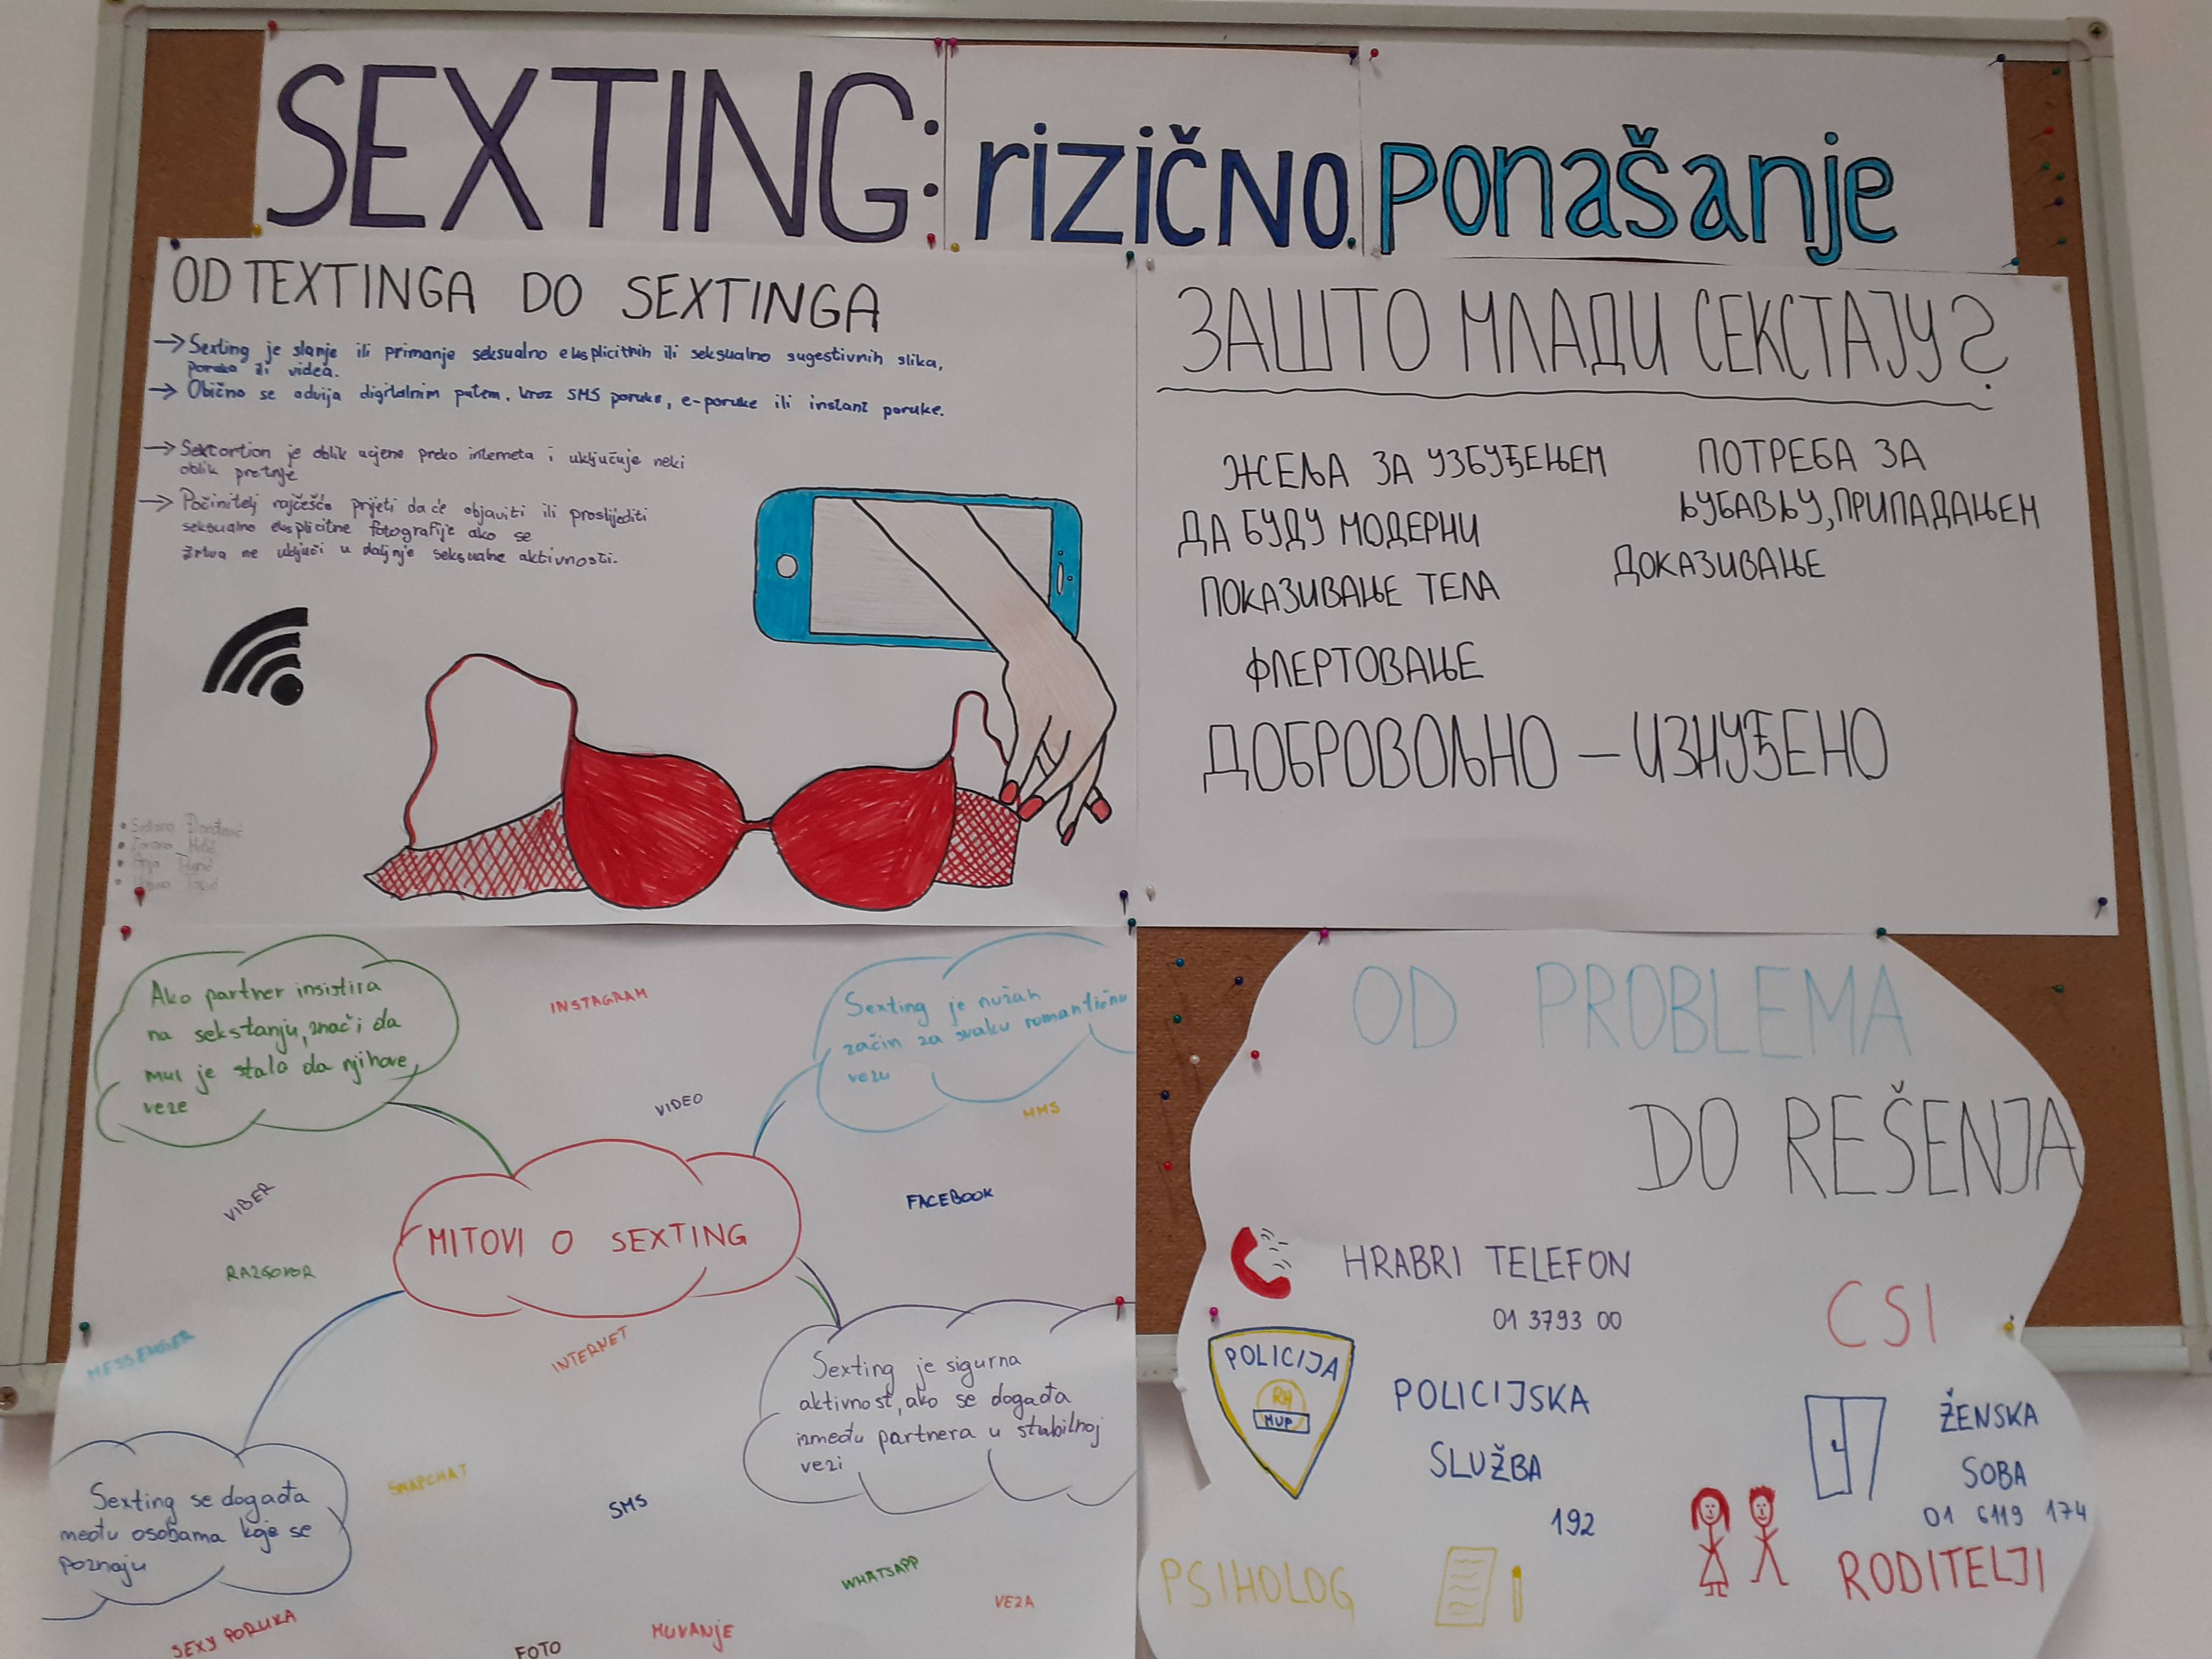 SEXTING: rizično ponašanje
OD TEXTINGA DO SEXTINGA
→ Sexting je slanje ili primanje seksualno eksplicitnih ili seksualno sugestivnih slika,
poruka ili videa.
→ Obično se odvija digitalnim putem. kroz SMS poruke, e-poruke ili instant poruke.
→ Sextortion je oblik ucjene preko interneta i uključuje neki
oblik pretnje
→ Počinitelj najčešće prijeti da će objaviti ili proslijediti
seksualno eksplicitne fotografije ako se
žrtva ne uključi u daljnje seksualne aktivnosti.
ЗАШТО МЛАДИ СЕКСТАЈУ?
ЖЕЉА ЗА УЗБУЂЕЊЕМ
ДА БУДУ МОДЕРНИ
ПОКАЗИВАЊЕ ТЕЛА
ФЛЕРТОВАЊЕ
ПОТРЕБА ЗА
ЉУБАВЉУ, ПРИПАДАЊЕМ
ДОКАЗИВАЊЕ
ДОБРОВОЉНО – ИЗНУЂЕНО
Ako partner insistira
na sekstanju, znači da
mu je stalo da njihove
veze
INSTAGRAM
Sexting je nužan
začin za svaku romantičnu
vezu
VIDEO
MMS
VIBER
FACEBOOK
MITOVI O SEXTING
RAZGOVOR
MESSENGER
INTERNET
Sexting je sigurna
aktivnost, ako se događa
između partnera u stabilnoj
vezi
SNAPCHAT
SMS
Sexting se događa
među osobama koje se
poznaju
WHATSAPP
VEZA
SEXY PORUKA
FOTO
MUVANJE
OD PROBLEMA
DO REŠENJA
HRABRI TELEFON
01 3793 00
CSI
POLICIJA
RH
MUP
POLICIJSKA
SLUŽBA
192
ŽENSKA
SOBA
01 6119 174
PSIHOLOG
RODITELJI